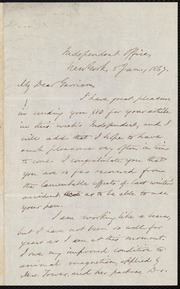 Independent Office,
New York, 8 Jan'y, 1867.
My Dear Garrison,
I have great pleasure
in sending you $50 for your article
in this week's Independent. I
will add that I hope to have
such pleasure very often in time
to come. I congratulate you that
you are so far recovered from
the lamentable effects of last winter's
accident as to be able to use
your pen.
I am working like a beaver,
but I have not been so well for
years as I am at this moment.
I owe my improved condition to
animal magnetism applied by
Mrs. and her partner Dr.